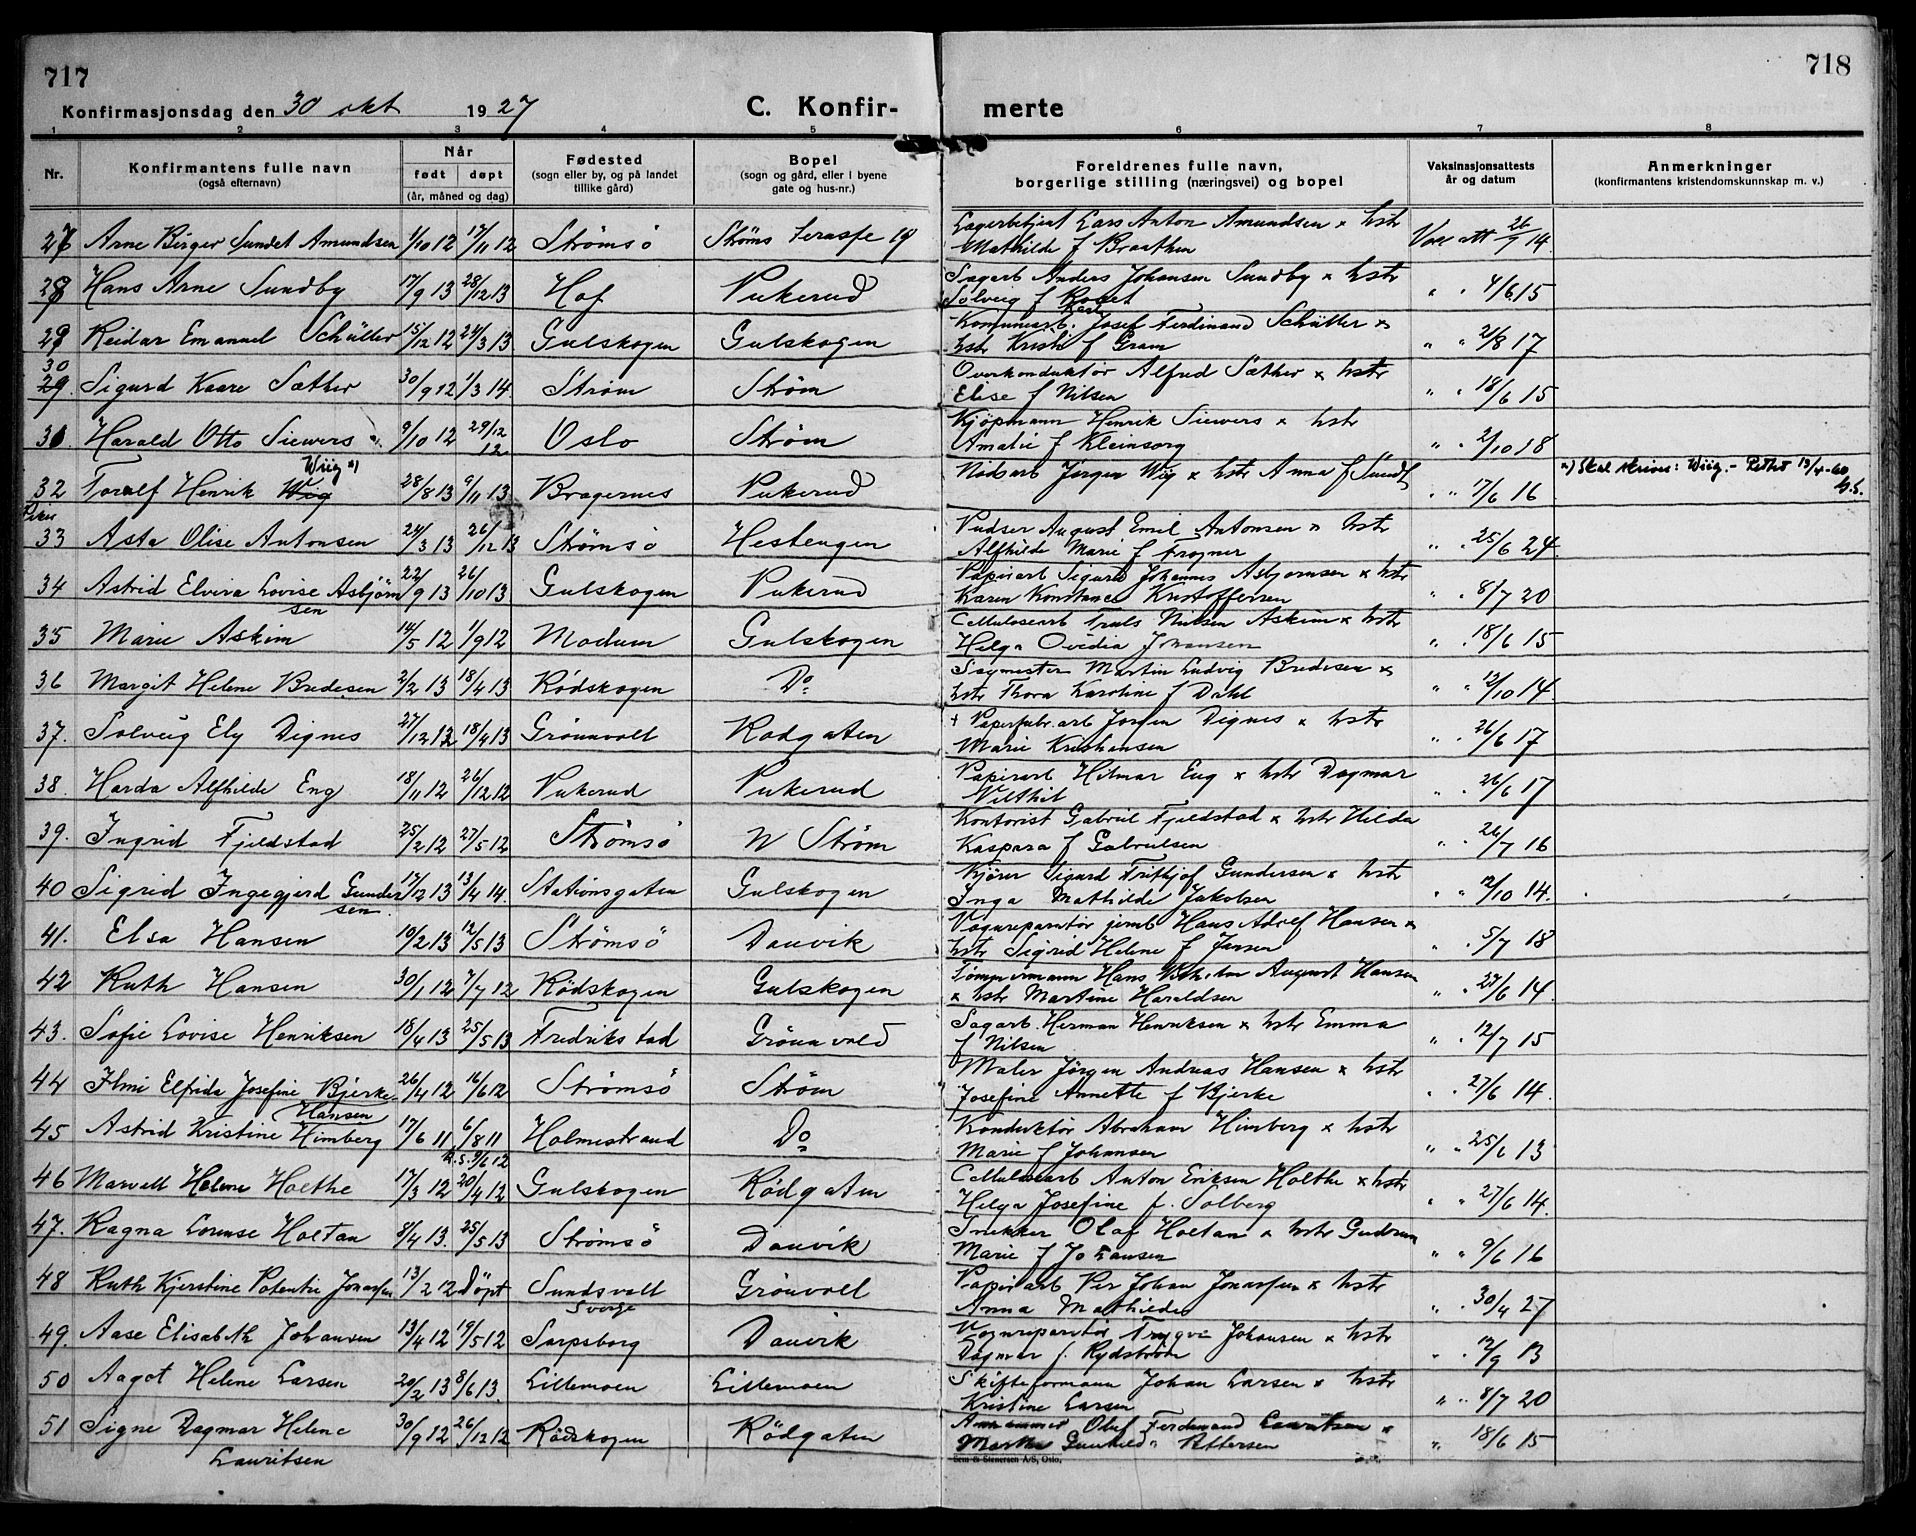 717
718
Konfirmasjonsdag den 30 okt 1927
C. Konfir-
merte
1 2 3 4 5 6 7 8
Nr. Konfirmantens fulle navn (også efternavn) Når født døpt (år, måned og dag) Fødested (sogn eller by, og på landet tillike gård) Bopel (sogn og gård, eller i byene gate og hus-nr.) Foreldrenes fulle navn, borgerlige stilling (næringsvei) og bopel Vaksinasjonsattests år og datum Anmerkninger (konfirmantens kristendomskunnskap m. v.)
27 Arne Birger Sundet Amundsen 1/10 12 17/11 12 Strømsö Ströms terasse 19 Lagerbetjent Lars Anton Amundsen x hstr
Mathilde f Braathen Vacc att 26/9 14
28 Hans Arne Sundby 17/9 13 28/12 13 Hof Pukerud Sagarb Anders Johansen Sundby x hstr
Solveig f " . 4/6 15
29 Reidar Emanuel Schüller 15/12 12 24/3 13 Gulskogen Gulskogen Kommunearb. Josef Ferdinand Schüller x
hstr f Gram " " 21/8 17
30
29. Sigurd Kaare Sæther 30/9 12 1/3 14 Strøm Strøm Overkonduktör Alfred Sæther x hstr
Elise f Nilsen " . 18/6 15
31 Harald Otto Siewers 9/10 12 29/12 12 Oslo Strøm Kjøpmann Henrik Siewers x hstr
Amalie f Kleinsorg " . 2/10 18
Wiig x)
32 Toralf Henrik Wig 28/8 13 9/11 13 Bragernes Pukerud Nödsarb Jörgen Wig x hstr Anna f Sundt " " 17/6 16 x) Skal skrives: Wiig. - Rettet 19/4-60
Piker
33 Asta Olise Antonsen 24/3 13 26/12 13 Strømsö Hestengen Pudser August Emil Antonsen x hstr
Alfhilde Marie f Frogner " . 25/6 24
34 Astrid Elvira Lovise Asbjörn
sen 22/9 13 26/10 13 Gulskogen Pukerud Papirarb Sigurd Johannes Asbjørnsen x hstr
Karen Konstance Kristoffersen " . 8/7 20
35 Marie Askim 14/5 12 1/9 12 Modum Gulskogen Cellulosearb Truls Nilsen Askim x hstr
Helga Ovidia Johansen " . 18/6 15
36 Margit Helene Bredesen 2/2 13 18/4 13 Rödskogen Do Sagmester Martin Ludvig Bredesen x
hstr Thora Karoline f Dahl " " 12/10 14.
37. Solveig Ely Dignes 27/12 12 18/4 13 Grönnvoll Rödgaten + Papirfabr.arb Jörgen Dignes x hstr
Marie Kristiansen " . 26/6 17
38. Harda Alfhilde Eng 18/11 12 26/12 12 Pukerud Pukerud Papirarb Hilmar Eng x hstr Dagmar
" . 26/6 17
39. Ingrid Fjeldstad 25/2 12 27/5 12 Strömsö N Ström Kontorist Gabriel Fjeldstad x hstr Hilda
Kaspara f Gabrielsen " . 26/7 16
40 Sigrid Ingegjerd Gunder
sen 17/12 13 13/4 14. Stationsgaten Gulskogen Kjører Sigurd Frithjof Gundersen x hstr
Inga Mathilde Jakobsen " " 12/10 14.
41. Elsa Hansen 10/2 13 12/5 13 Strømsö Danvik Vognreparatör jernb Hans Adolf Hansen x
hstr Sigrid Helene f Jensen " . 5/7 18
42 Ruth Hansen 30/1 12 7/7 12 Rödskogen Gulskogen Tömmermann Hans August Hansen
x hstr Martine Haraldsen " " 27/6 14
43. Sofie Lovise Henriksen 18/4 13 25/5 13 Fredrikstad Grönnvold Sagarb. Herman Henriksen x hstr Emma
f Nilsen " . 12/7 15
44 Ilmi Elfrida Josefine Bjerke
Hansen 26/4 12 16/6 12 Strømsö Ström Maler Jörgen Andreas Hansen x hstr
Josefine Annette f Bjerke " . 27/6 14.
45 Astrid Kristine Himberg 17/6 11 6/8 11 Holmestrand Do Konduktör Abraham Himberg x hstr
Marie f Johansen " " 25/6 13
46 Helene Holthe 17/3 12 20/4 12 Gulskogen Rödgaten Cellulosearb Anton Eriksen Holthe x hstr
Helga Josefine f. Solberg " " 27/6 14.
47. Ragna Lovise Holtan 8/4 13. 25/5 13 Strömsö Danvik Snekker Olaf Holtan x hstr Gudrun
Marie f Johansen " " 9/6 16
48 Ruth Kjerstine Potentia Jonassen 13/2 12 Döpt Sundsvall
Sverge Grönvoll Papirarb Per Johan Jonassen x hstr
Anna Mathilde " . 30/4 27
49. Aase Elisabeth Johansen 13/4 12 19/5 12 Sarpsborg Danvik Vognreparatör Trygve Johansen x hstr
Dagmar f. Rydström " . 12/9 13
50 Aagot Helene Larsen 20/2 13 8/6 13. Lillemoen Lillemoen Skifteformann Johan Larsen x hstr
Kristine Larsen " " 8/7 20
51 Signe Dagmar Helene
Lauritsen 30/9 12 26/12 12 Rödskogen Rödgaten Oluf Ferdinand Lauritsen x
Gunhild Pettersen " 18/6 15
Sem & Stenersen A/S, Oslo.